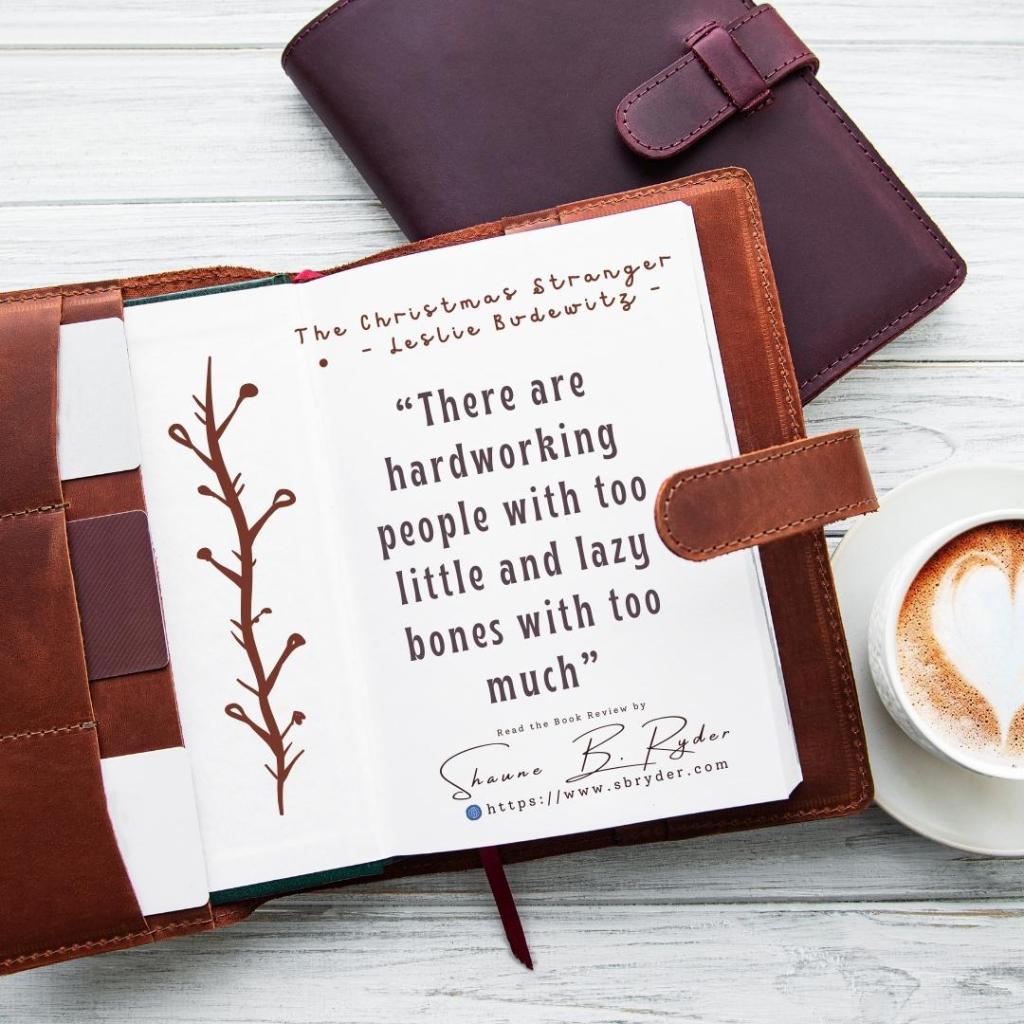 The Christmas Stranger
• - Leslie Budewitz -
“There are
hardworking
people with too
little and lazy
bones with too
much”
Read the Book Review by
Shaune B. Ryder
https://www.sbryder.com